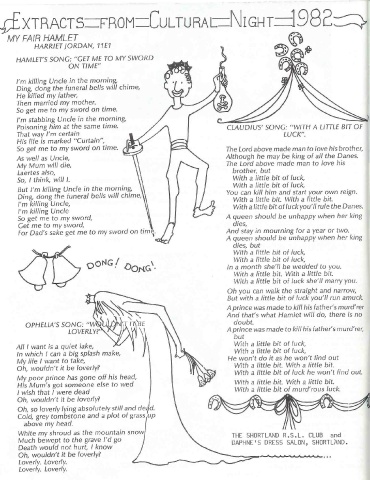 EXTRACTS FROM CULTURAL NIGHT 1982
MY FAIR HAMLET
HARRIET JORDAN, 11E1
HAMLET'S SONG: "GET ME TO MY SWORD
ON TIME"
I'm killing Uncle in the morning,
Ding, dong the funeral bells will chime,
He killed my father,
Then married my mother.
So get me to my sword on time.
I'm stabbing Uncle in the morning,
Poisoning him at the same time.
That way I'm certain
His file is marked "Curtain",
So get me to my sword on time.
As well as Uncle,
My Mum will die,
Laertes also,
So, I think, will I.
But I'm killing Uncle in the morning,
Ding, dong the funeral bells will chime,
I'm killing Uncle,
I'm killing Uncle
So get me to my sword,
Get me to my sword,
For Dad's sake get me to my sword on time.
DONG! DONG!
OPHELIA'S SONG: "WOULDN'T IT BE
LOVERLY?"
All I want is a quiet lake,
In which I can a big splash make,
My life I want to take,
Oh, wouldn't it be loverly?
My poor prince has gone off his head,
His Mum's got someone else to wed
I wish that I were dead
Oh, wouldn't it be loverly?
Oh, so loverly lying absolutely still and dead.
Cold, grey tombstone and a plot of grass up
above my head.
White my shroud as the mountain snow
Much bewept to the grave I'd go
Death would not hurt, I know
Oh, wouldn't it be loverly!
Loverly. Loverly.
Loverly. Loverly.
CLAUDIUS' SONG: "WITH A LITTLE BIT OF
LUCK".
The Lord above made man to love his brother,
Although he may be king of all the Danes.
The Lord above made man to love his
brother, but
With a little bit of luck,
With a little bit of luck,
You can kill him and start your own reign.
With a little bit. With a little bit.
With a little bit of luck you'll rule the Danes.
A queen should be unhappy when her king
dies,
And stay in mourning for a year or two.
A queen should be unhappy when her king
dies, but
With a little bit of luck,
With a little bit of luck,
In a month she'll be wedded to you.
With a little bit. With a little bit.
With a little bit of luck she'll marry you.
Oh you can walk the straight and narrow,
But with a little bit of luck you'll run amuck.
A prince was made to kill his father's murd'rer
And that's what Hamlet will do, there is no
doubt.
A prince was made to kill his father's murd'rer,
but
With a little bit of luck,
With a little bit of luck,
He won't do it as he won't find out
With a little bit. With a little bit.
With a little bit of luck he won't find out.
With a little bit. With a little bit.
With a little bit of murd'rous luck.
THE SHORTLAND R.S.L. CLUB and
DAPHNE'S DRESS SALON, SHORTLAND.